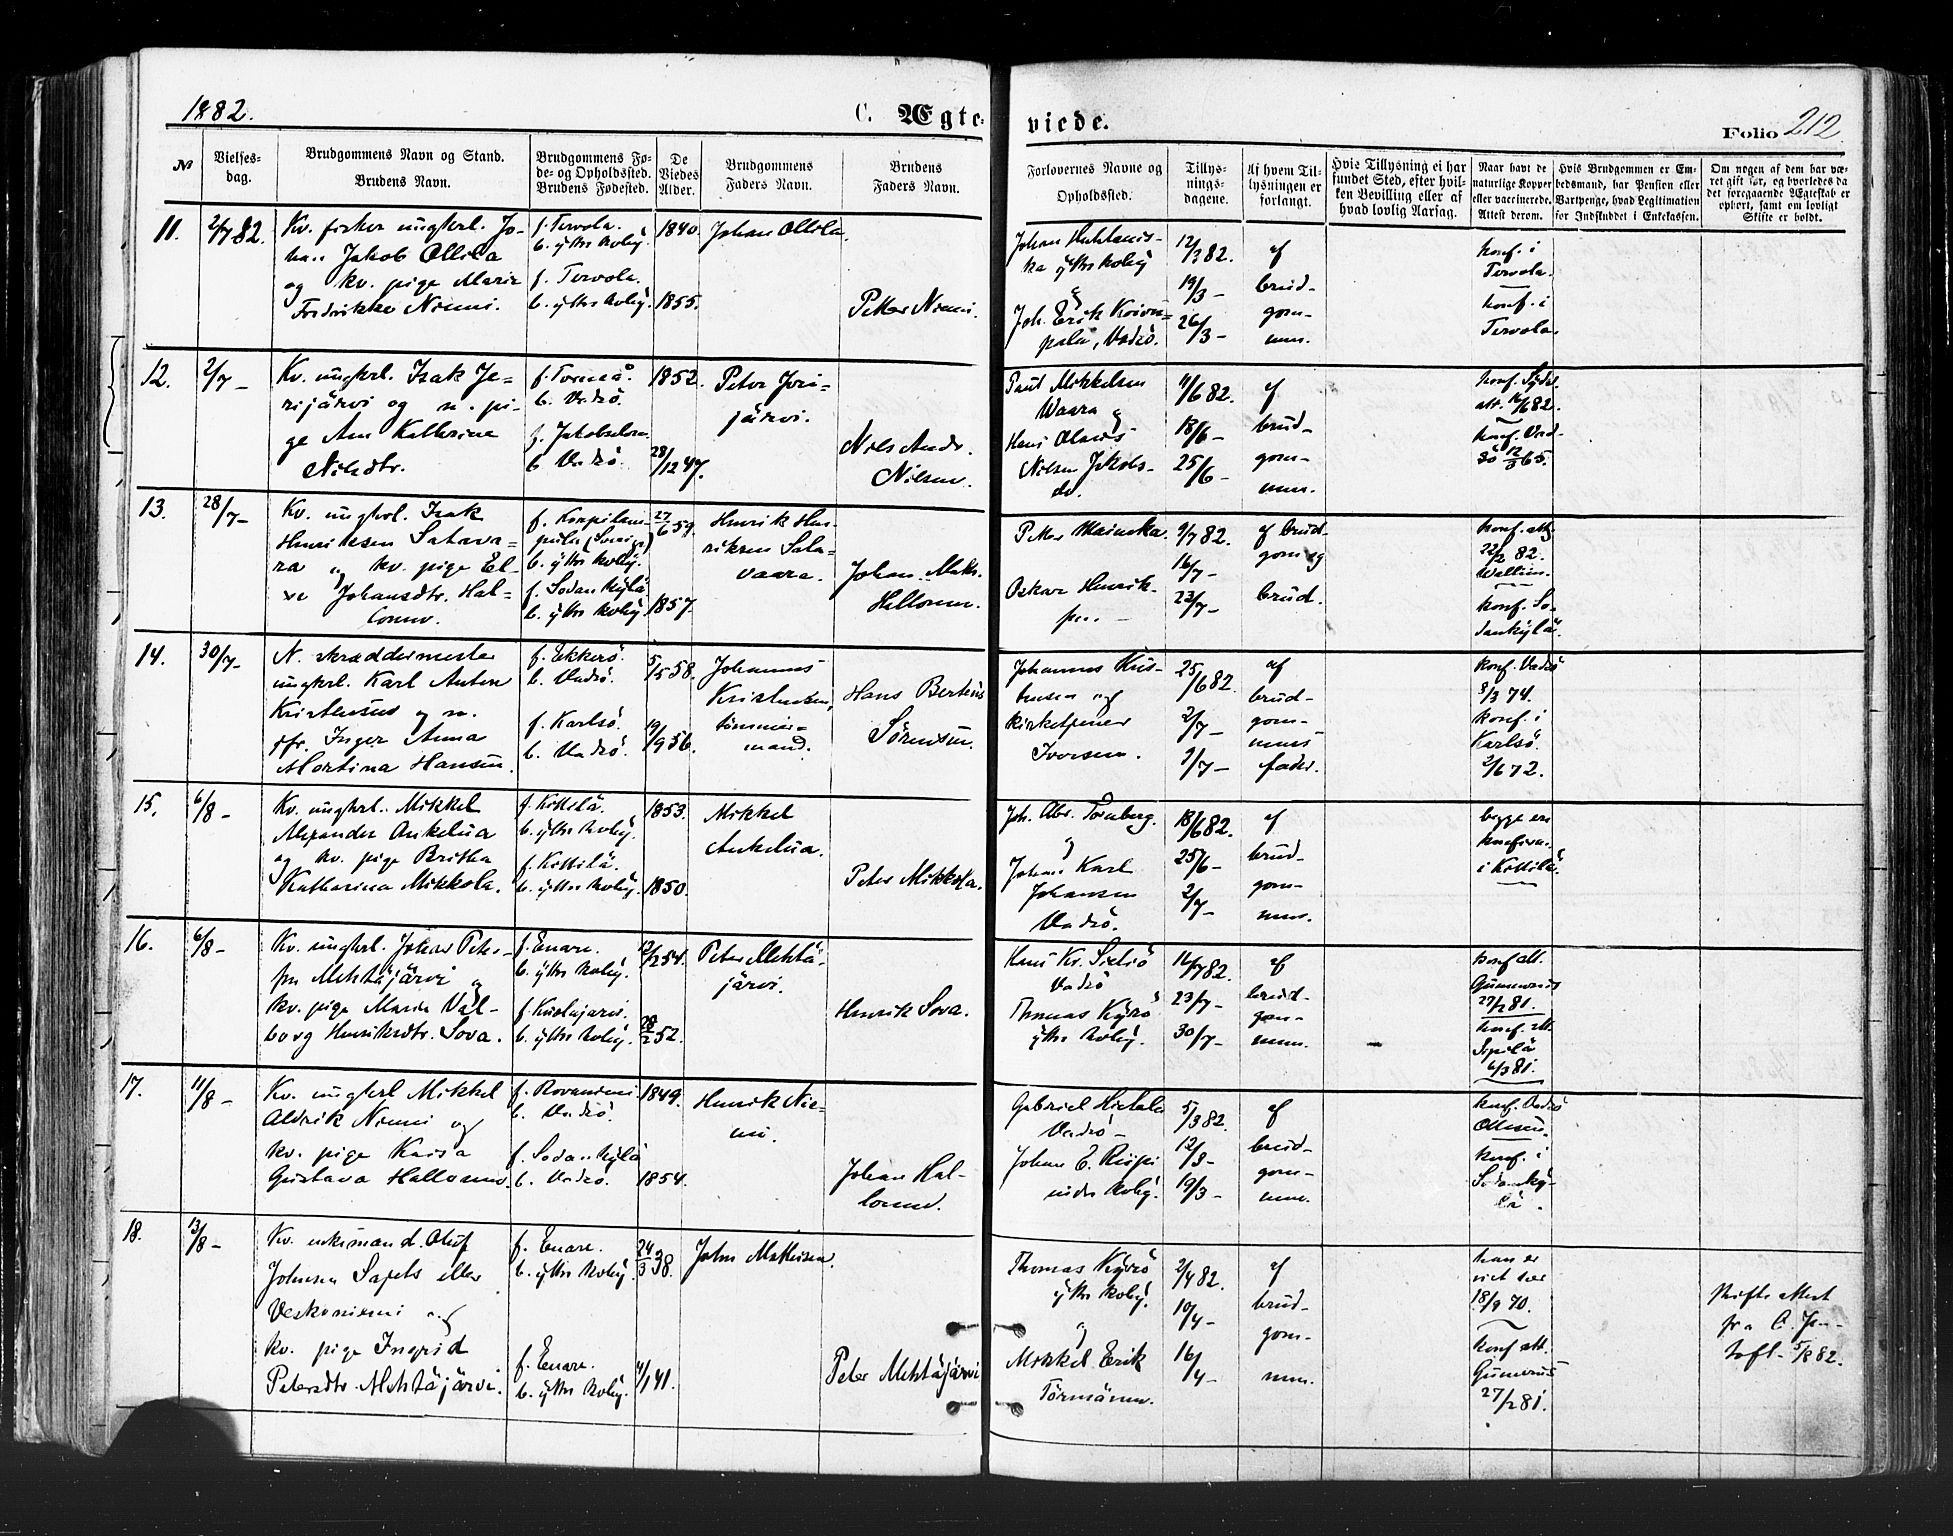 1882.
C. Ægteviede.
Folio 212
№
Vielses-
dag.
Brudgommens Navn og Stand.
Brudens Navn.
Brudgommens Fø-
de- og Opholdssted.
Brudens Fødested.
De
Viedes
Alder.
Brudgommens
Faders Navn.
Brudens
Faders Navn.
Forlovernes Navne og
Opholdssted.
Tillys-
nings-
dagene.
Af hvem Til-
lysningen er
forlangt.
Hvis Tillysning ei har
fundet Sted, efter hvil-
ken Bevilling eller af
hvad lovlig Aarsag.
Naar havt de
naturlige Kopper
eller vaccinerede.
Attest derom.
Hvis Brudgommen er Em-
bedsmand, har Pension eller
Vartpenge, hvad Legitimation
for Indskuddet i Enkekassen.
Om nogen af dem har væ-
ret gift før, og hvorledes da
det foregaaende Ægteskab er
ophørt, samt om lovligt
Skifte er holdt.
11.
2/7 82.
Kv. fisker ungkrl. Jo-
han Jakob Ollila
og kv. pige Maria
Fredrikke Niemi.
f. Tervola.
b. ytre kvby.
f. Tervola.
b. ytre kvby.
1840.
1855.
Johan Ollila.
Petter Niemi.
Johan
ka ytre kvby
&
Joh. Erik
Vadsö.
12/3 82.
19/3 –
26/3 –
af
brud-
gom-
men.
konf. i
Tervola.
konf. i
Tervola.
12.
2/7 –
Kv. ungkrl. Isak Je-
rijärvi og n. pi-
ge Ane Kathrine
Nilsdtr.
f. Torneå.
b. Vadsö.
f. Jakobselven.
b. Vadsö.
1852.
28/12 47.
Peter Jeri-
järvi.
Nils Andr.
Nilsen.
Paul Mikkelsen
Waara &
Hans
Nilsen Jakobs-
elv.
11/6 82.
18/6 –
25/6 –
af
brud-
gom-
men.
konf.
att. 82.
konf. Vad-
sö 65.
13.
28/7 –
Kv. ungkrl. Isak
Henriksen Satava-
ra & kv. pige El-
se Johansdtr. Hal-
lonen.
f.
b. ytre kvby.
f. Sodankylä
b. ytre kvby.
27/6 59.
1857.
Henrik Hen-
riksen Sata-
vaara.
Johan Mats.
Hallonen.
Petter Mainoka
Oskar Henrik-
sen. –
9/7 82.
16/7 –
23/7 –
af brud-
gom og
brud.
konf. att.
22/2 82.
Wallin.
konf. So-
dankylä.
14.
30/7 –
N. skræddermester
ungkrl. Karl Anton
Kristensen og n.
pige Inger Anna
Martina Hansen.
f. Ekkerö.
b. Vadsö.
f. Karlsö.
b. Vadsö.
5/5 58.
19/9 56.
Johannes
Kristensen,
tömmer-
mand.
Hans Berteus
Sörensen.
Johannes Kris-
tensen og
kirketjener
Iversen.
25/6 82.
2/7 –
9/7 –
af
brud-
gom-
mens
fader.
konf. Vadsö
8/3 74.
konf. i
Karlsö.
2/6 72.
15.
6/8 –
Kv. ungkrl. Mikkel
Alexander Ankelua
og kv. pige Britha
Katharina Mikkola.
f. Kittilä.
b. ytre kvby.
f. Kittilä.
b. ytre kvby.
1853.
1850.
Mikkel
Ankelua.
Peter Mikkola.
Joh. Abr. Tornberg.
&
Johan Karl
Johansen
Vadsö.
18/6 82.
25/6 –
2/7 –
af
brud-
gom-
men.
begge ere
konfirm.
i Kittilä.
16.
6/8 –
Kv. ungkrl. Johan Peter-
sen Mehtäjärvi &
kv. pige Maria Val-
borg Henriksdtr. Sova.
f. Enare.
b. ytre kvby.
f. Kuolajarvi.
b. ytre kvby.
12/2 54.
28/2 52.
Peter Mehtä-
järvi.
Henrik Sova.
Hans Kr.
Vadsö
Thomas Kyrö
ytre kvby.
16/7 82.
23/7 –
30/7 –
af
brud-
gom-
men.
konf. att.
Gummerus
27/2 81.
konf. att.
6/3 81.
17.
11/8 –
Kv. ungkrl Mikkel
Aldrik Niemi og
kv. pige Kaisa
Gustava Hallonen.
f. Rovaniemi
b. Vadsö.
f. Sodankylä
b. Vadsö.
1849.
1854.
Henrik Nie-
mi.
Johan Hal-
lonen.
Gabriel Hietala
Vadsö –
Johan E. Riipi
indre kvby.
5/3 82.
12/3 –
19/3 –
af
brud-
gom-
men.
konf. Vadsö
konf. i
Sodanky-
lä.
18.
13/8 –
Kv. enkemand. Oluf
Johnsen Sajets eller
Veskoniemi og
kv. pige Ingrid
Petersdtr. Mehtäjärvi.
f. Enare.
b. ytre kvby.
f. Enare.
b. ytre kvby.
24/3 38.
4/1 41.
John Mathisen.
Peter Mehtäjärvi
Thomas Kyrö
ytre kvby.
&
Mikkel Erik
Törmänen.
2/4 82.
10/4 –
16/4 –
af
brud-
gom-
men.
han er
viet her
18/9 70.
konf. att.
Gummerus
27/2 81.
Skifte attest
fra
5/8 82.